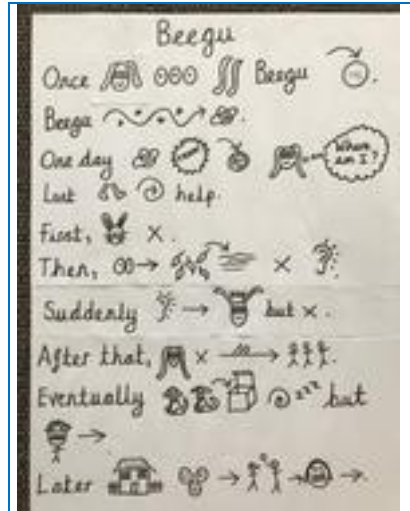 Beegu
Once Beegu
Beegu
One day Where am I?
Lost help.
First, x.
Then, x
Suddenly but x.
After that, x
Eventually zzz but
Later